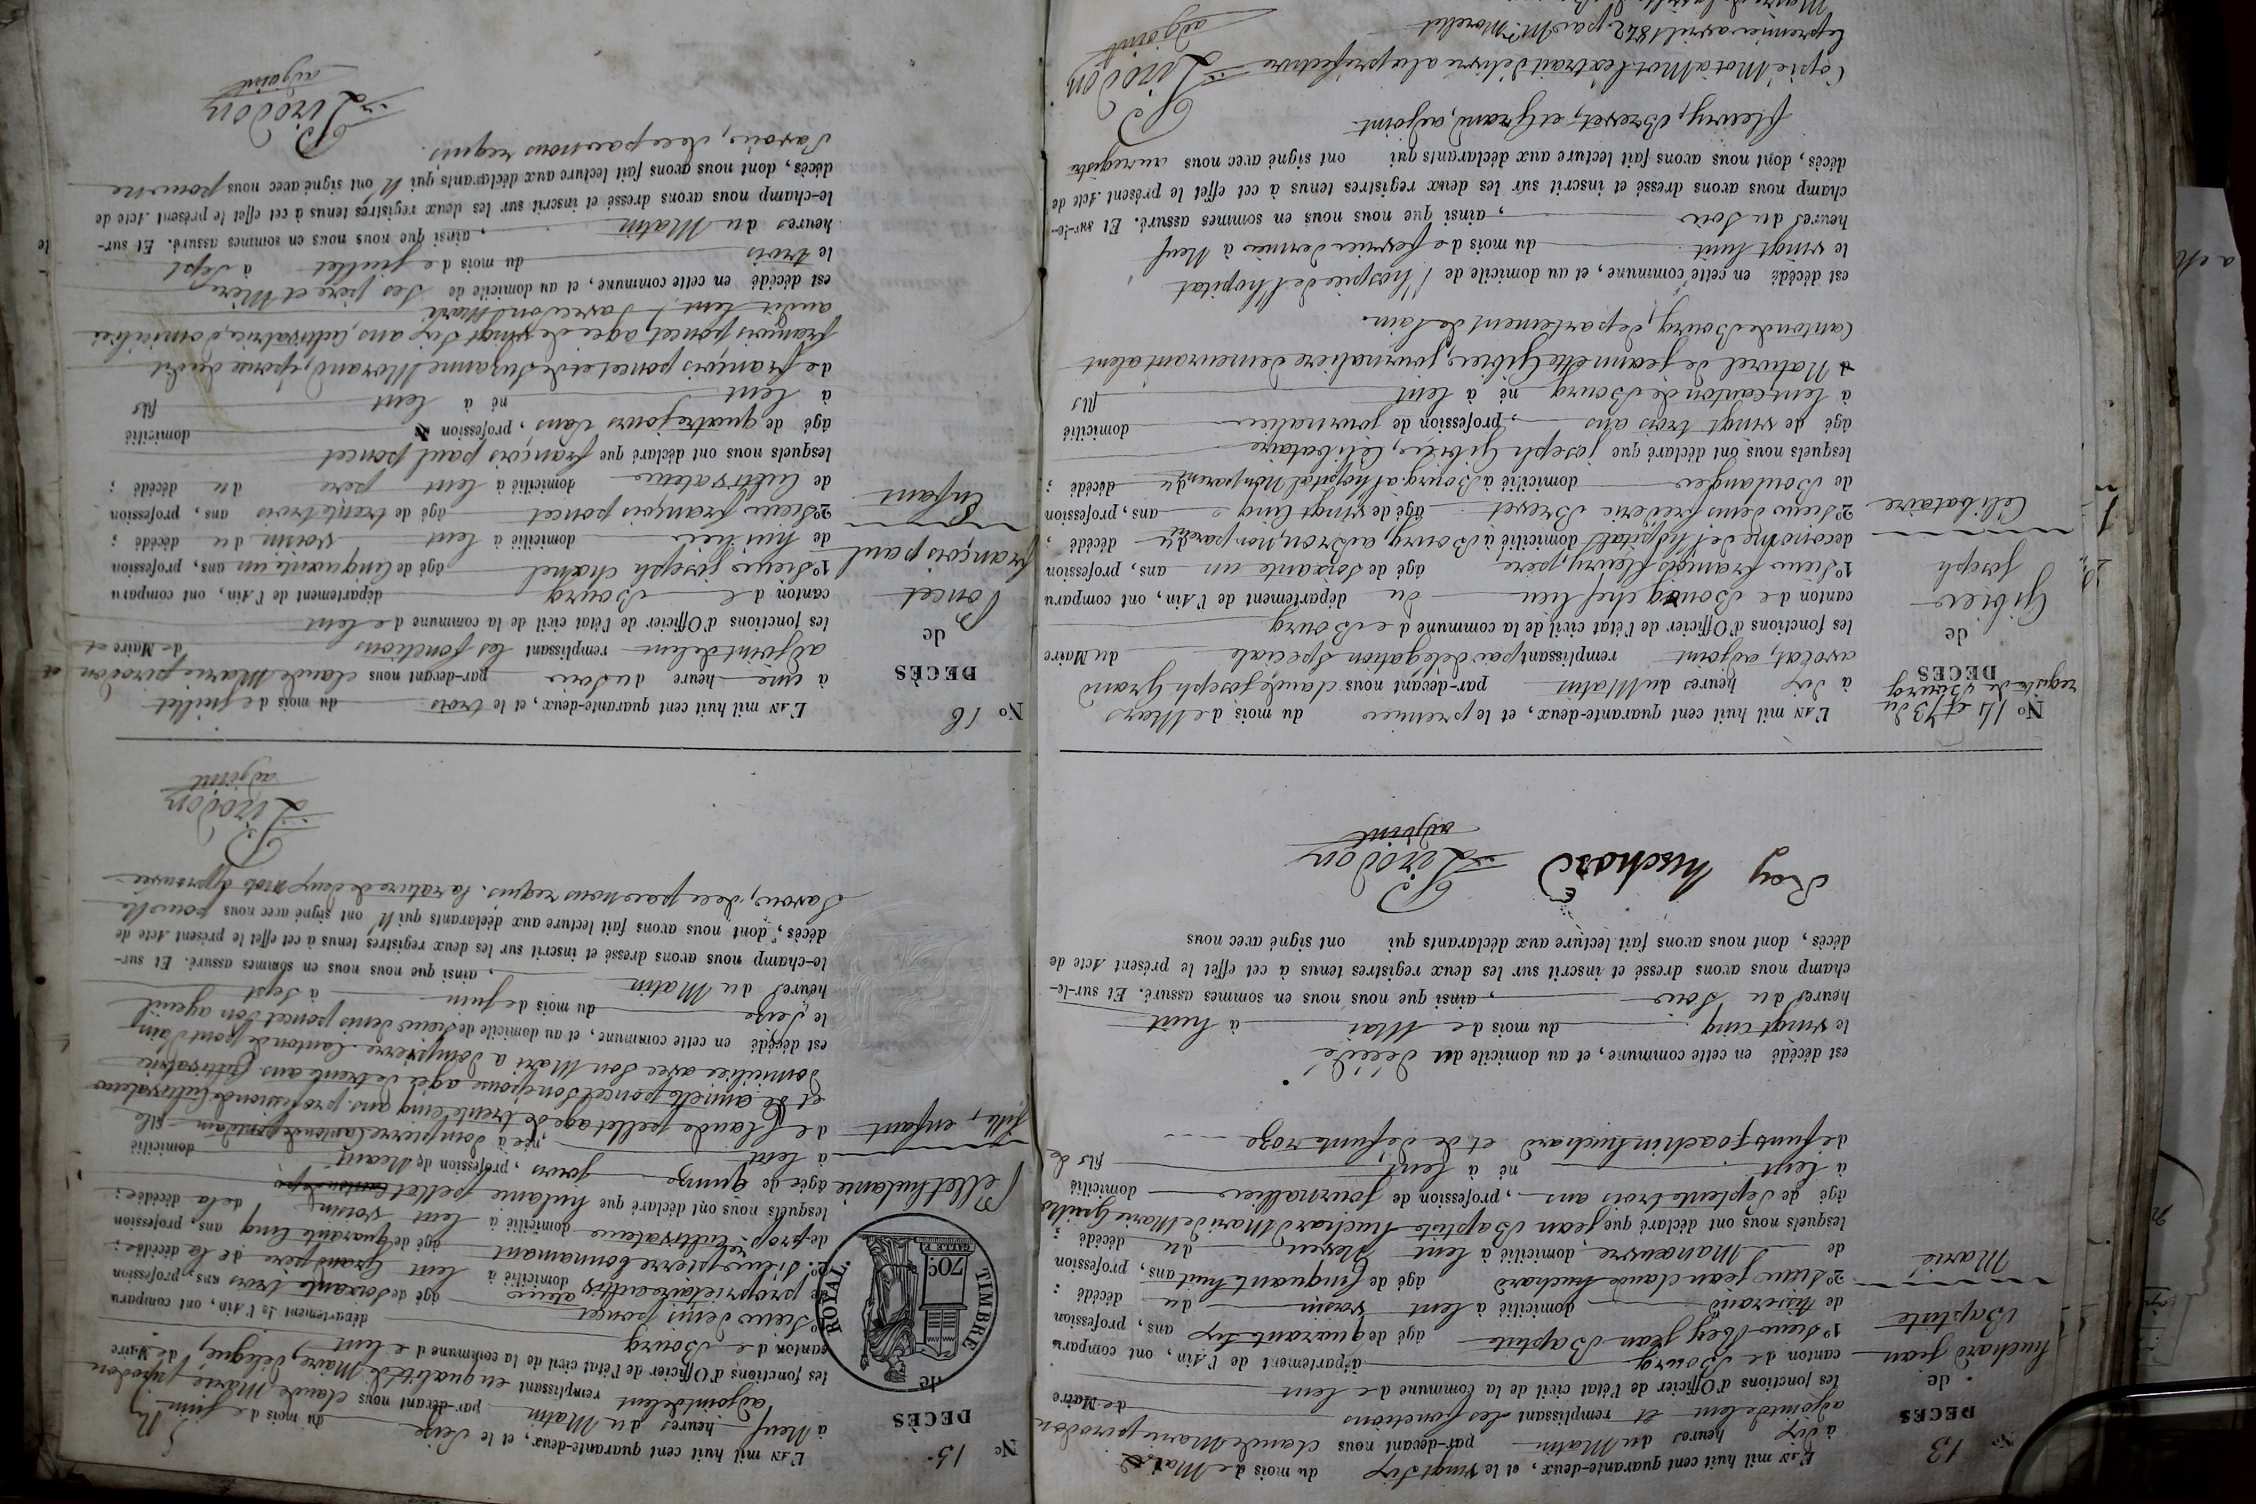 No 13
DECES
de
huchard jean
Baptiste
Marié
L'AN mil huit cent quarante-deux, et le vingt six du mois de Mai
à dix heures du Matin par-devant nous claude Marie pirodon
adjoint de lent et remplissant les fonctions de Maire
les fonctions d'Officier de l'état civil de la commune de lent
canton de Bourg département de l'Ain, ont comparu
1° Sieur Rey jean Baptiste âgé de quarante six ans, profession
de tisserand domicilié à lent voisin du décédé ;
2° Sieur jean claude huchard âgé de cinquante huit ans, profession
de Manœuvre domicilié à lent Neveu du décédé ;
lesquels nous ont déclaré que jean Baptiste huchard Mari de Marie
âgé de Septente trois ans, profession de journallier domicilié
à lent né à lent fils de
defunt joachin huchard et de defunte roze
est décédé en cette commune, et au domicile du décédé
le vingt cinq du mois de Mai à huit
heures du Soir, ainsi que nous nous en sommes assuré. Et sur-le-
champ nous avons dressé et inscrit sur les deux registres tenus à cet effet le présent Acte de
décès, dont nous avons fait lecture aux déclarants qui ont signé avec nous
Roy huchard Pirodon
adjoint
No 14 et 73 du
registre de Bourg
DECES
de
Gibier
joseph
Célibataire
L'AN mil huit cent quarante-deux, et le premier du mois de Mars
à dix heures du Matin par-devant nous claude joseph Grand
avocat, adjoint remplissant par délégation Speciale du Maire
les fonctions d'Officier de l'état civil de la commune de Bourg
canton de Bourg chef lieu du département de l'Ain, ont comparu
1° Sieur françois fleury, père, âgé de Soixante un ans, profession
d'econome de l'hôpital domicilié à Bourg, au Brou, non parent du décédé ;
2° Sieur denis fréderic Brevet âgé de vingt cinq ans, profession
de Boulanger domicilié à Bourg a l'hopital Non parent du décédé ;
lesquels nous ont déclaré que joseph Gibier, Célibataire
âgé de vingt trois ans, profession de journalier domicilié
à lent canton de Bourg né à lent fils
Naturel de jeannette Gibier, journalière demeurant a lent
Canton de Bourg, département de l'ain.
est décédé en cette commune, et au domicile de l'hospice de l'hopital
le vingt huit du mois de fevrier dernier à Neuf
heures du Soir, ainsi que nous nous en sommes assuré. Et sur-le-
champ nous avons dressé et inscrit sur les deux registres tenus à cet effet le présent Acte de
décès, dont nous avons fait lecture aux déclarants qui ont signé avec nous au registre
fleury, Brevet, et Grand, adjoint
Copie Mot à Mot l'extrait délivré a la préfecture
le premier avril 1842, par Mr. Morellet
Pirodon
adjoint
No 15
DECÈS
de
TIMBRE ROYAL.
70c
Pellet hulanie
fille, enfant
L'AN mil huit cent quarante-deux, et le Seize du mois de juin
à Neuf heures du Matin par-devant nous claude Marie pirodon
adjoint de lent remplissant en qualité de Maire, délégué, de Maire
les fonctions d'Officier de l'état civil de la commune de lent
canton de Bourg département de l'Ain, ont comparu
1° Sieur denis poncet âgé de Soixante trois ans, profession
de propriétaire cultivateur domicilié à lent Grand père de la décédée ;
2° Sieur pierre bonnamant âgé de quarante cinq ans, profession
de prop. re Cultivateur domicilié à lent voisin de la décédée ;
lesquels nous ont déclaré que hulanie pellet
âgée de Quinze jours, profession de Neant domicilié
à lent née à dompierre canton de pontdain fille
de Claude pellet age de trente cinq ans, profession de Cultivateur
et de annette poncet Son épouse agée de trente ans Cultivatrice
domiciliée avec Son Mari a dompierre Canton de pont d'ain
est décédée en cette commune, et au domicile de Sieur denis poncet Son ayeuil
le Seize du mois de juin à Sept
heures du Matin, ainsi que nous nous en sommes assuré. Et sur-
le-champ nous avons dressé et inscrit sur les deux registres tenus à cet effet le présent Acte de
décès, dont nous avons fait lecture aux déclarants qui N'ont signé avec nous pour Ne
Savoir, de ce par nous requis. la rature de deux mots approuvée
Pirodon
adjoint
No 16
DECÈS
de
Poncet
françois paul
Enfant
L'AN mil huit cent quarante-deux, et le trois du mois de juillet
à une heure du Soir par-devant nous claude Marie pirodon
adjoint de lent remplissant les fonctions de Maire et
les fonctions d'Officier de l'état civil de la commune de lent
canton de Bourg département de l'Ain, ont comparu
1° Sieur joseph chanel âgé de Cinquante un ans, profession
de huilier domicilié à lent voisin du décédé ;
2° Sieur françois poncet âgé de trente trois ans, profession
de Cultivateur domicilié à lent père du décédé ;
lesquels nous ont déclaré que françois paul poncet
âgé de quatre jours Sans, profession domicilié
à lent né à lent fils
de françois poncet et de Suzanne Morand, épouse dudit
françois poncet, agée de vingt Six ans, cultivatrice, domiciliée
audit lent, avec Son Mari.
est décédé en cette commune, et au domicile de Ses père et Mère
le trois du mois de juillet à Sept
heures du Matin, ainsi que nous nous en sommes assuré. Et sur-
le-champ nous avons dressé et inscrit sur les deux registres tenus à cet effet le présent Acte de
décès, dont nous avons fait lecture aux déclarants qui N'ont signé avec nous pour ne
Savoir, de ce par nous requis.
Pirodon
adjoint